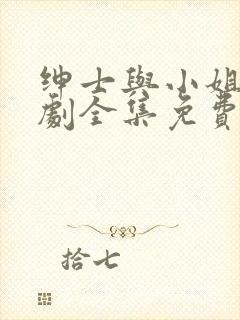 绅士與小姐
劇全集免費
拾七